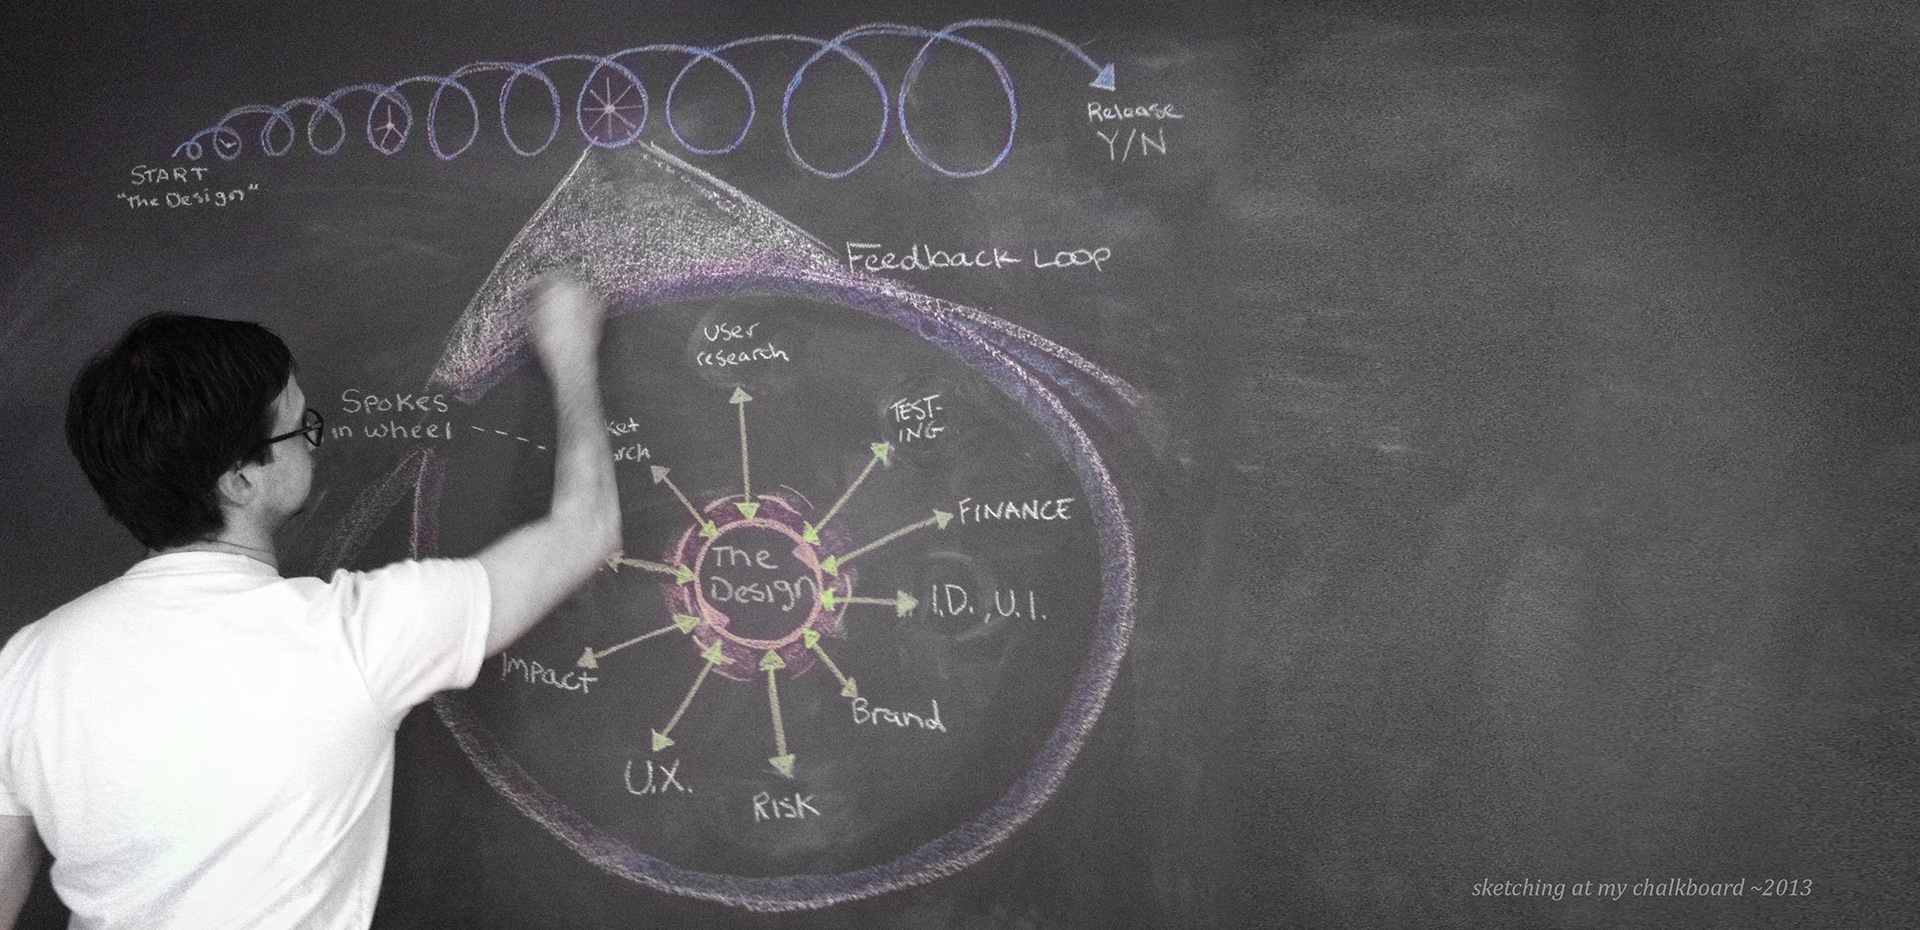 Release
Y/N
START
"the Design"
Feedback Loop
user
research
Spokes
in wheel
TEST-
ING
FINANCE
The
Design
I.D., U.I.
Impact
Brand
U.X.
RISK
sketching at my chalkboard ~2013